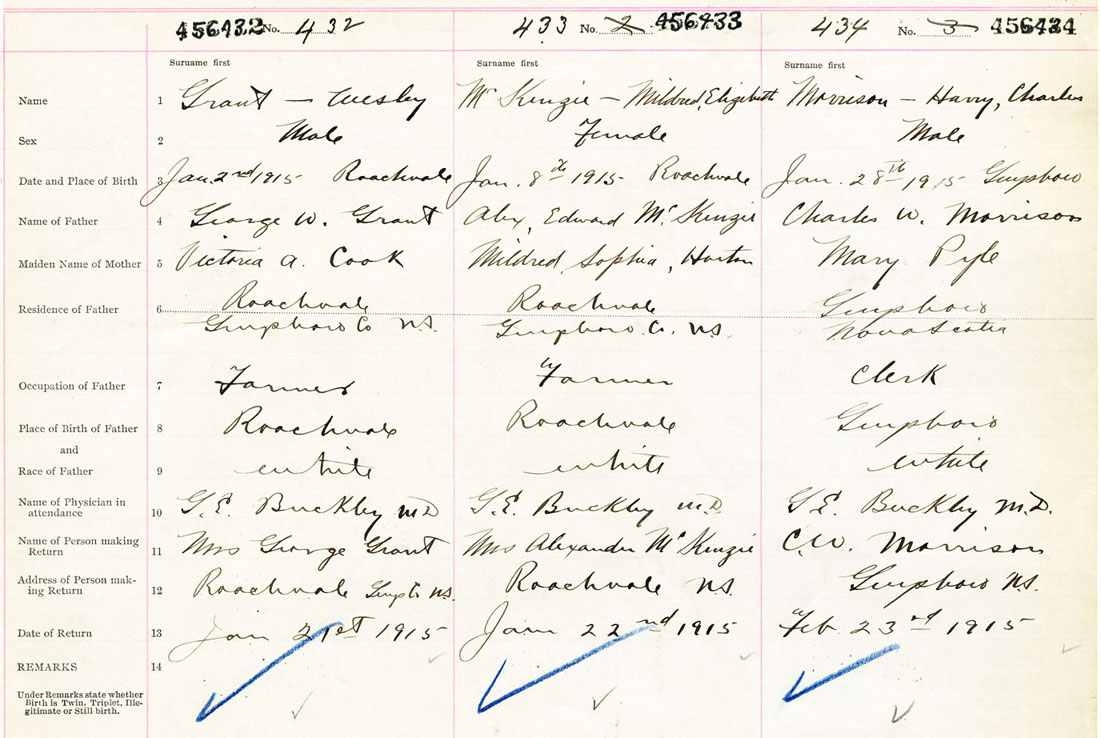 456432 No. 432 433 No. 2 456433 434 No. 3 456434
Surname first Surname first Surname first
Name 1 Grant – Wesley McKinzie – Mildred, Elizibett Morrison – Harry, Charles
Sex 2 Male Female Male
Date and Place of Birth 3 Jan. 2nd 1915 Roachvale Jan. 8th 1915 Roachvale Jan. 28th 1915 Guysboro
Name of Father 4 George W. Grant Alex, Edward McKinzie Charles W. Morrison
Maiden Name of Mother 5 Victoria A. Cook Mildred, Sophia, Horton Mary Pyle
Residence of Father 6 Roachvale Roachvale Guysboro
Guysboro Co N.S. Guysboro. Co. N.S. Nova Scotia
Occupation of Father 7 Farmer Farmer Clerk
Place of Birth of Father 8 Roachvale Roachvale Guysboro
and
Race of Father 9 white white white
Name of Physician in
attendance 10 G.E. Buckley M.D. G.E. Buckley M.D. G.E. Buckley M.D.
Name of Person making
Return 11 Mrs George Grant Mrs Alexander McKinzie C.W. Morrison
Address of Person mak-
ing Return 12 Roachvale Guys Co N.S. Roachvale N.S. Guysboro N.S.
Date of Return 13 Jan 21st 1915 Jan 22nd 1915 Feb 23rd 1915
REMARKS 14
Under Remarks state whether
Birth is Twin, Triplet, Ille-
gitimate or Still-birth.